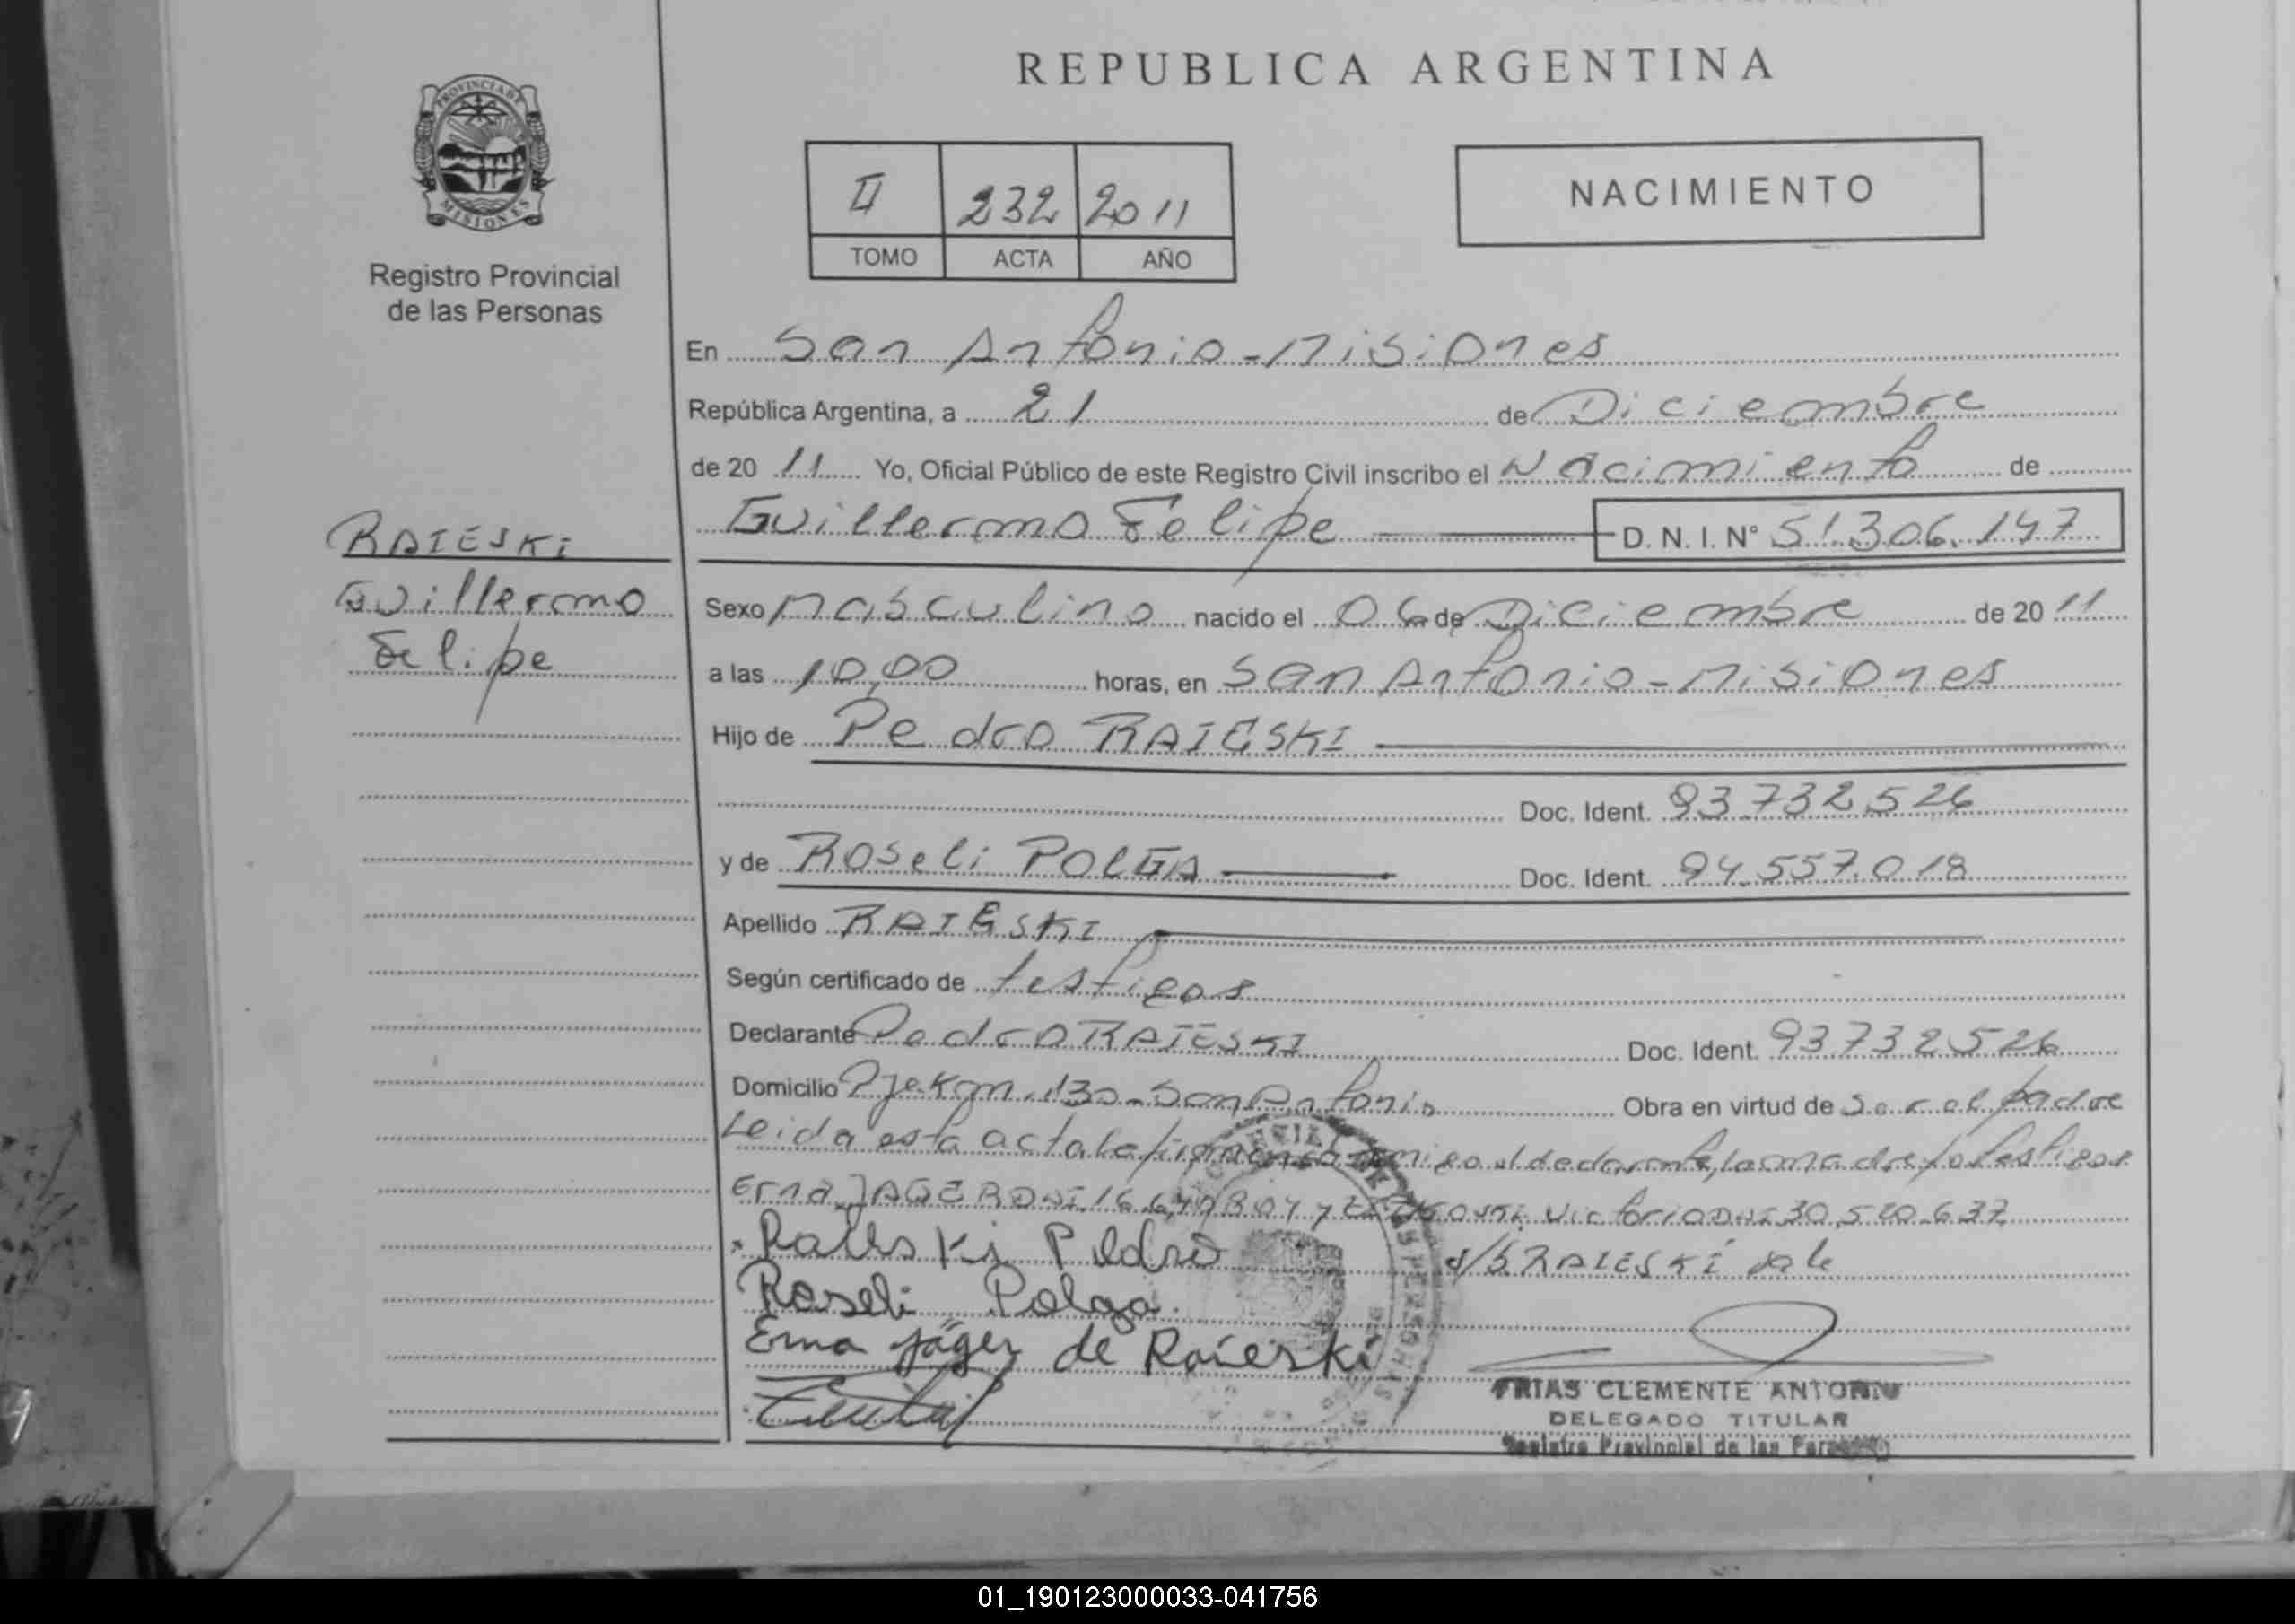 REPUBLICA ARGENTINA
PROVINCIA DE
MISIONES
Registro Provincial
de las Personas
II 232 2011
TOMO ACTA AÑO
NACIMIENTO
En San Antonio - Misiones
República Argentina, a 21 de Diciembre
de 20 11 Yo, Oficial Público de este Registro Civil inscribo el Nacimiento de
Guillermo Felipe D. N. I. N° 51.306.147
RAIESKi
Guillermo
Felipe
Sexo Masculino nacido el 06 de Diciembre de 20 11
a las 10,00 horas, en San Antonio - Misiones
Hijo de Pedro RAIESKI
Doc. Ident. 93.732.526
y de Roseli POLGA Doc. Ident. 94.557.018
Apellido RAIESKI
Según certificado de testigos
Declarante Pedro RAIESKI Doc. Ident. 93.732.526
Domicilio Pje Km. 130 - San Antonio Obra en virtud de Ser el padre
Leida esta acta la firman conmigo el declarante, la madre y los testigos
Erna JAGER DNI. 16.640.804 y Victorio DNI 30.520.637
Raieski Pedro s/b RAIESKI vale
Roseli Polga
Erna Jäger de Raieski
FRIAS CLEMENTE ANTONIO
DELEGADO TITULAR
Registro Provincial de las Personas
01_190123000033-041756